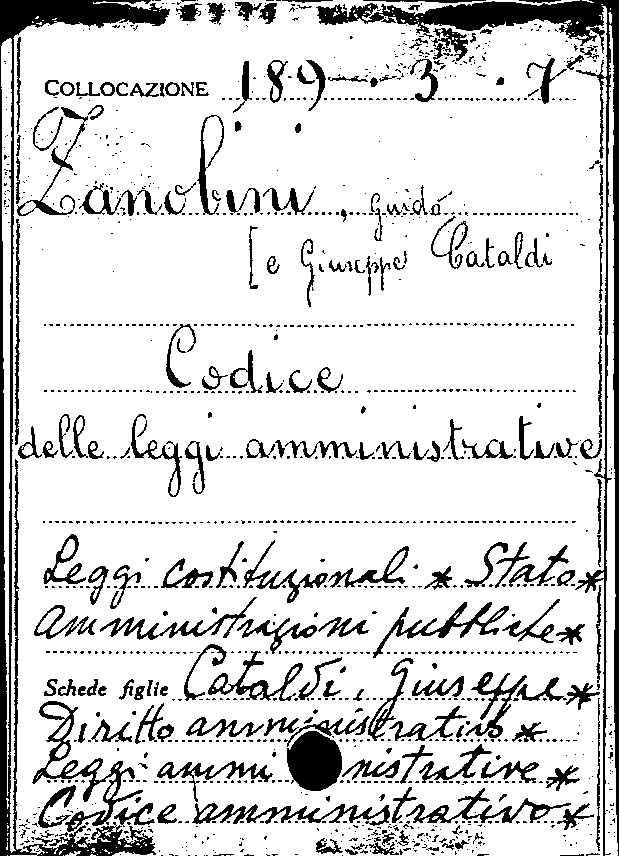 COLLOCAZIONE 189 · 3 · 7
Zanobini, Guido
[e Giuseppe Cataldi
Codice
delle leggi amministrative
Leggi costituzionali * Stato *
Amministrazioni pubbliche *
Schede figlie Cataldi, Giuseppe *
Diritto amministrativo *
Leggi amministrative *
Codice amministrativo *